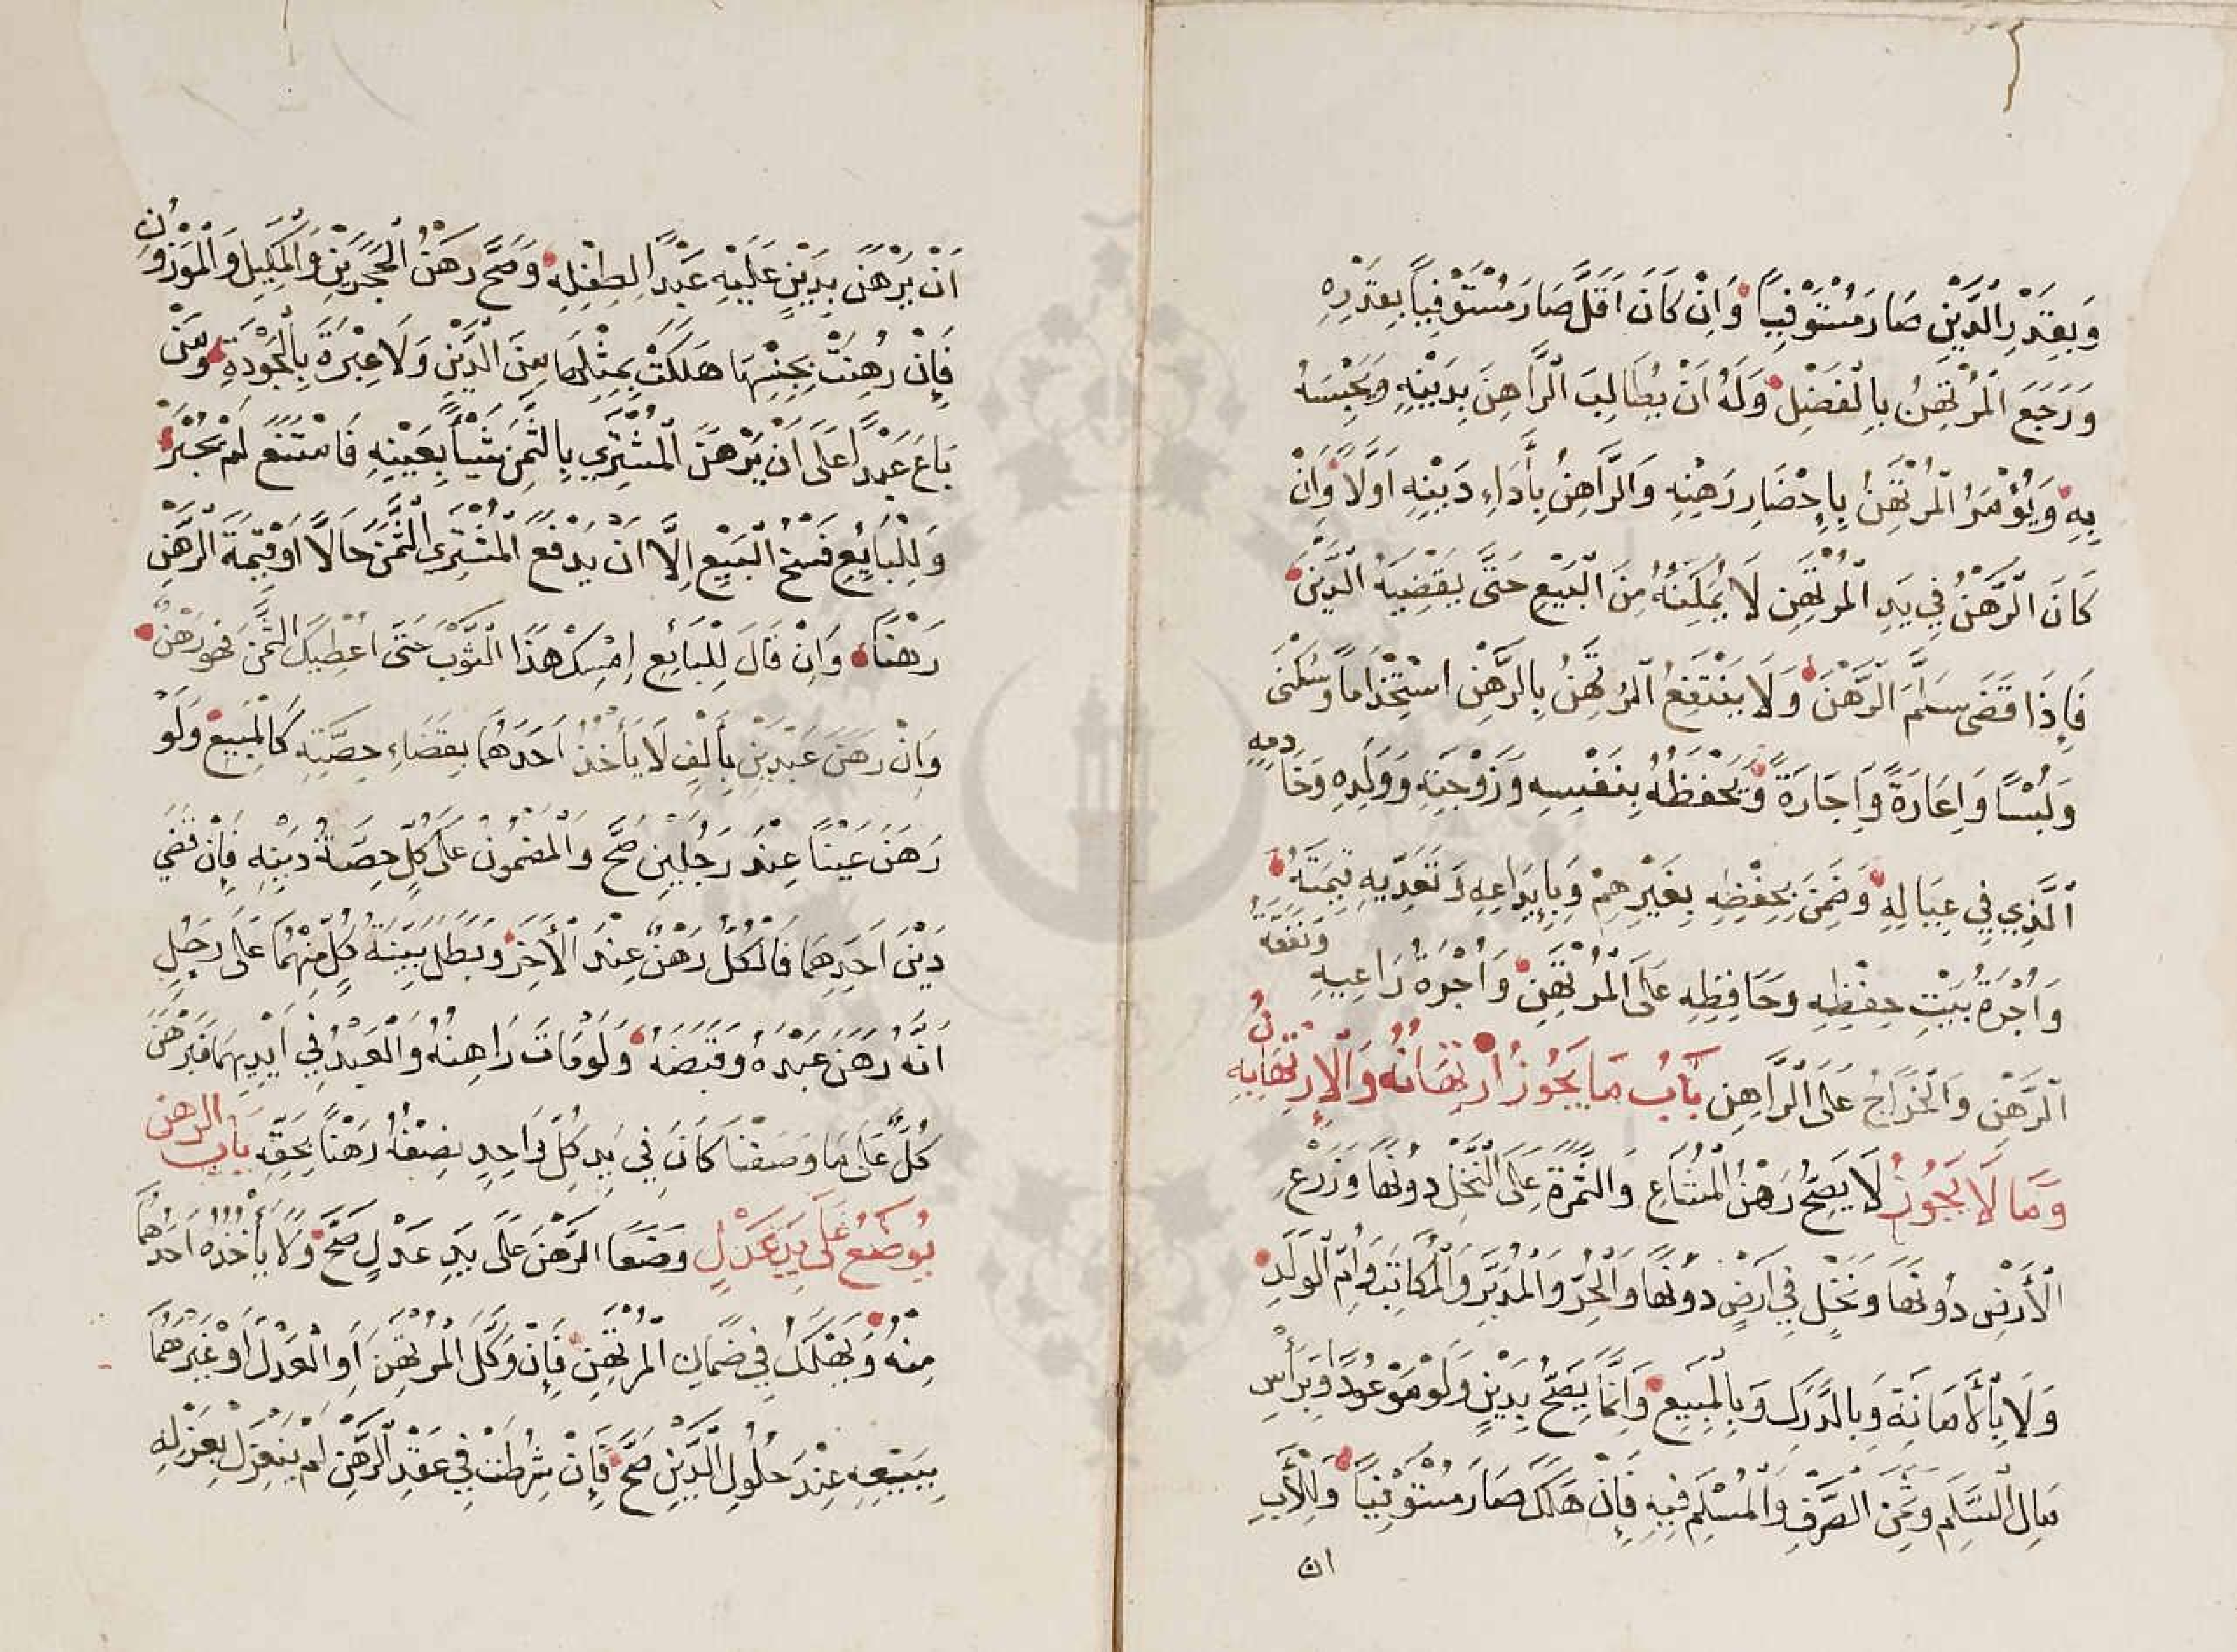 وَبِقَدْرِ الدَّيْنِ صَارَ مُسْتَوْفِيًا وَاِنْ كَانَ اَقَلَّ صَارَ مُسْتَوْفِيًا بِقَدْرِهِ
وَرَجَعَ الْمُرْتَهِنُ بِالْفَضْلِ وَلَهُ اَنْ يُطَالِبَ الرَّاهِنَ بِدَيْنِهِ وَيَحْبِسَهُ
بِهِ وَيُؤْمَرُ الْمُرْتَهِنُ بِإِحْضَارِ رَهْنِهِ وَالرَّاهِنُ بِأَدَاءِ دَيْنِهِ اَوَّلًا وَاِنْ
كَانَ الرَّهْنُ فِي يَدِ الْمُرْتَهِنِ لَا يُمَكِّنُهُ مِنَ الْبَيْعِ حَتَّى يَقْضِيَهُ الدَّيْنَ
فَإِذَا قَضَى سَلَّمَ الرَّهْنَ وَلَا يَنْتَفِعُ الْمُرْتَهِنُ بِالرَّهْنِ اسْتِخْدَامًا وَسُكْنَى
وَلُبْسًا وَإِعَارَةً وَإِجَارَةً وَيَحْفَظُهُ بِنَفْسِهِ وَزَوْجَتِهِ وَوَلَدِهِ وَخَادِمِهِ
الَّذِي فِي عِيَالِهِ وَضَمِنَ بِحِفْظِهِ بِغَيْرِهِمْ وَبِإِيدَاعِهِ وَتَعَدِّيهِ قِيمَتَهُ
وَاُجْرَةُ بَيْتِ حِفْظِهِ وَحَافِظِهِ عَلَى الْمُرْتَهِنِ وَاُجْرَةُ رَاعِيهِ وَنَفَقَة
الرَّهْنِ وَالْخَرَاجُ عَلَى الرَّاهِنِ بَابُ مَا يَجُوزُ ارْتِهَانُهُ وَالْاِرْتِهَانُ بِهِ
وَمَا لَا يَجُوزُ لَا يَصِحُّ رَهْنُ الْمُشَاعِ وَالثَّمَرَةِ عَلَى النَّخْلِ دُونَهَا وَزَرْعِ
الْأَرْضِ دُونَهَا وَنَخْلٍ فِي اَرْضٍ دُونَهَا وَالْحُرِّ وَالْمُدَبَّرِ وَالْمُكَاتَبِ وَاُمِّ الْوَلَدِ
وَلَا بِالْأَمَانَةِ وَبِالدَّرَكِ وَبِالْمَبِيعِ وَاِنَّمَا يَصِحُّ بِدَيْنٍ وَلَوْ مَوْعُودًا وَبِرَأْسِ
مَالِ السَّلَمِ وَثَمَنِ الصَّرْفِ وَالْمُسْلَمِ فِيهِ فَإِنْ هَلَكَ صَارَ مُسْتَوْفِيًا وَلِلْأَبِ
ان
اَنْ يَرْهَنَ بِدَيْنٍ عَلَيْهِ عَبْدًا لِطِفْلِهِ وَصَحَّ رَهْنُ الْحَجَرَيْنِ وَالْمَكِيلِ وَالْمَوْزُونِ
فَإِنْ رُهِنَتْ بِجِنْسِهَا هَلَكَتْ بِمِثْلِهَا مِنَ الدَّيْنِ وَلَا عِبْرَةَ بِالْجَوْدَةِ وَمَنْ
بَاعَ عَبْدًا عَلَى اَنْ يَرْهَنَ الْمُشْتَرِي بِالثَّمَنِ شَيْأً بِعَيْنِهِ فَامْتَنَعَ لَمْ يُجْبَرْ
وَلِلْبَايِعِ فَسْخُ الْبَيْعِ اِلَّا اَنْ يَدْفَعَ الْمُشْتَرِي الثَّمَنَ حَالًّا اَوْ قِيمَةَ الرَّهْنِ
رَهْنًا وَاِنْ قَالَ لِلْبَايِعِ اِمْسِكْ هَذَا الثَّوْبَ حَتَّى اُعْطِيَكَ الثَّمَنَ فَهُوَ رَهْنٌ
وَاِنْ رَهَنَ عَبْدَيْنِ بِأَلْفٍ لَا يَأْخُذُ اَحَدَهُمَا بِقَضَاءِ حِصَّتِهِ كَالْمَبِيعِ وَلَوْ
رَهَنَ عَيْنًا عِنْدَ رَجُلَيْنِ صَحَّ وَالْمَضْمُونُ عَلَى كُلٍّ حِصَّةُ دَيْنِهِ فَإِنْ قَضَى
دَيْنَ اَحَدِهِمَا فَالْكُلُّ رَهْنٌ عِنْدَ الْأَخَرِ وَبَطَلَ بَيِّنَةُ كُلٍّ مِنْهُمَا عَلَى رَجُلٍ
اَنَّهُ رَهَنَ عَبْدَهُ وَقَبَضَهُ وَلَوْ مَاتَ رَاهِنُهُ وَالْعَبْدُ فِي اَيْدِيهِمَا فَبَرْهَنَ
كُلٌّ عَلَى مَا وَصَفْنَا كَانَ فِي يَدِ كُلِّ وَاحِدٍ نِصْفُهُ رَهْنًا بِحَقِّهِ بَابُ الرهن
يُوضَعُ عَلَى يَدِ عَدْلٍ وَضَعَا الرَّهْنَ عَلَى يَدِ عَدْلٍ صَحَّ وَلَا يَأْخُذُهُ اَحَدُهُمَا
مِنْهُ وَيَهْلَكُ فِي ضَمَانِ الْمُرْتَهِنِ فَإِنْ وَكَّلَ الْمُرْتَهِنَ اَوِ الْعَدْلَ اَوْ غَيْرَهُمَا
بِبَيْعِهِ عِنْدَ حُلُولِ الدَّيْنِ صَحَّ فَإِنْ شُرِطَتْ فِي عَقْدِ الرَّهْنِ لَمْ يَنْعَزِلْ بِعَزْلِهِ